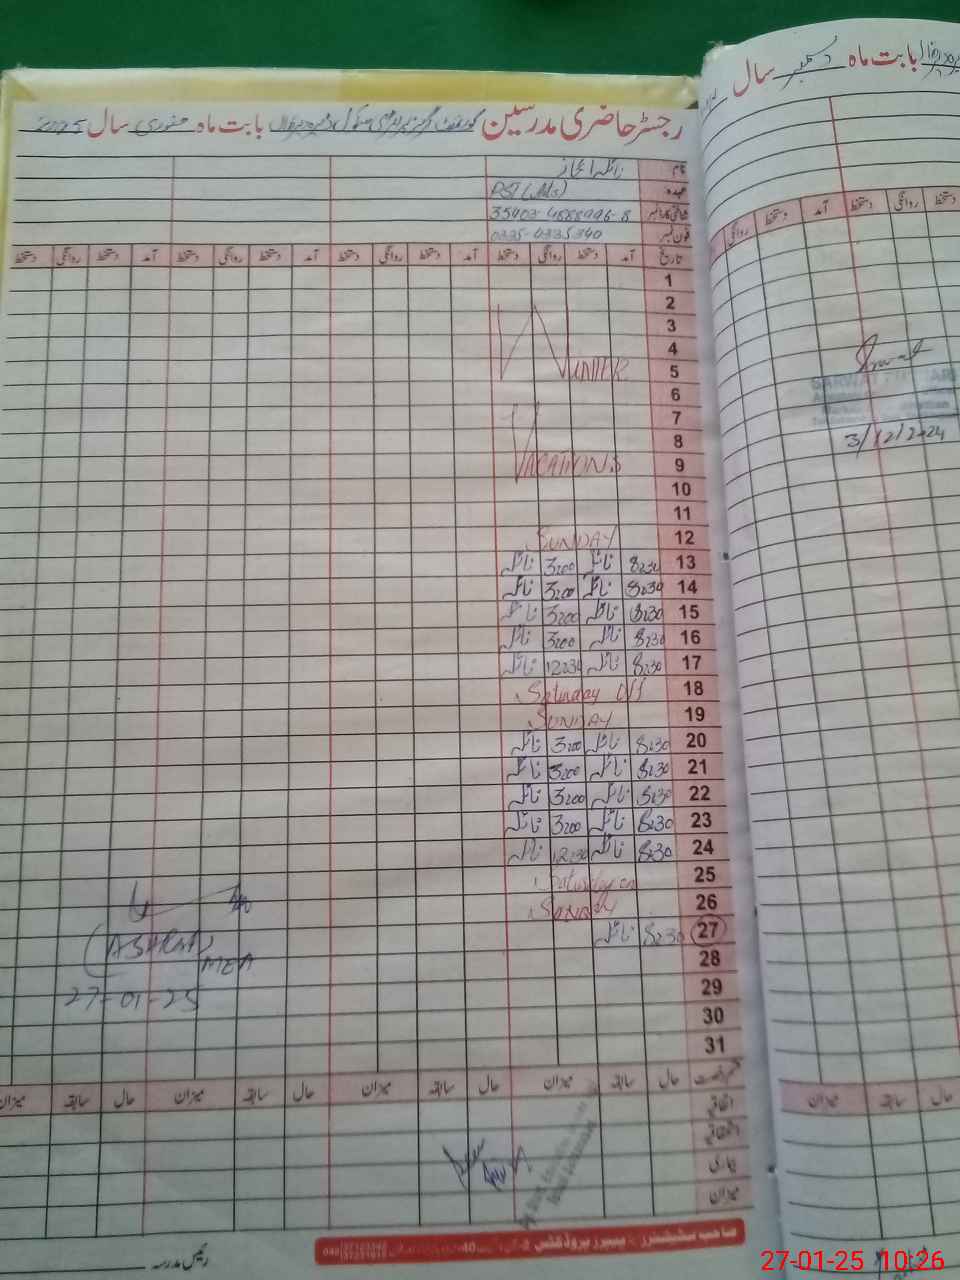 رجسٹر حاضری مدرسین گورنمنٹ گرلز پرائمری سکول بابت ماہ جنوری سال 2025
نام نائلہ اعجاز
عہدہ PST
شناختی کارڈ نمبر 35403-4888996-8
فون نمبر 0335-4335340
تاریخ آمد دستخط روانگی دستخط آمد دستخط روانگی دستخط آمد دستخط روانگی دستخط آمد دستخط روانگی دستخط
1
2
3
4
5 WINTER
6
7
8
9 VACATIONS
10
11
12 SUNDAY
13 8:30 نائلہ 3:00 نائلہ
14 8:30 نائلہ 3:00 نائلہ
15 8:30 نائلہ 3:00 نائلہ
16 8:30 نائلہ 3:00 نائلہ
17 8:30 نائلہ 12:30 نائلہ
18 Saturday Off
19 SUNDAY
20 8:30 نائلہ 3:00 نائلہ
21 8:30 نائلہ 3:00 نائلہ
22 8:30 نائلہ 3:00 نائلہ
23 8:30 نائلہ 3:00 نائلہ
24 8:30 نائلہ 12:30 نائلہ
25 Saturday
26 SUNDAY
27 8:30 نائلہ
28
29
30
31
(ASHRAF)
MEA
27-01-25
حال سابقہ میزان حال سابقہ میزان حال سابقہ میزان حال سابقہ میزان
اتفاقیہ
بیماری
میزان
رئیس مدرسہ
بابت ماہ دسمبر سال
دستخط روانگی دستخط آمد دستخط روانگی
SARWAT
3/12/2024
میزان سابقہ حال
27-01-25 10:26